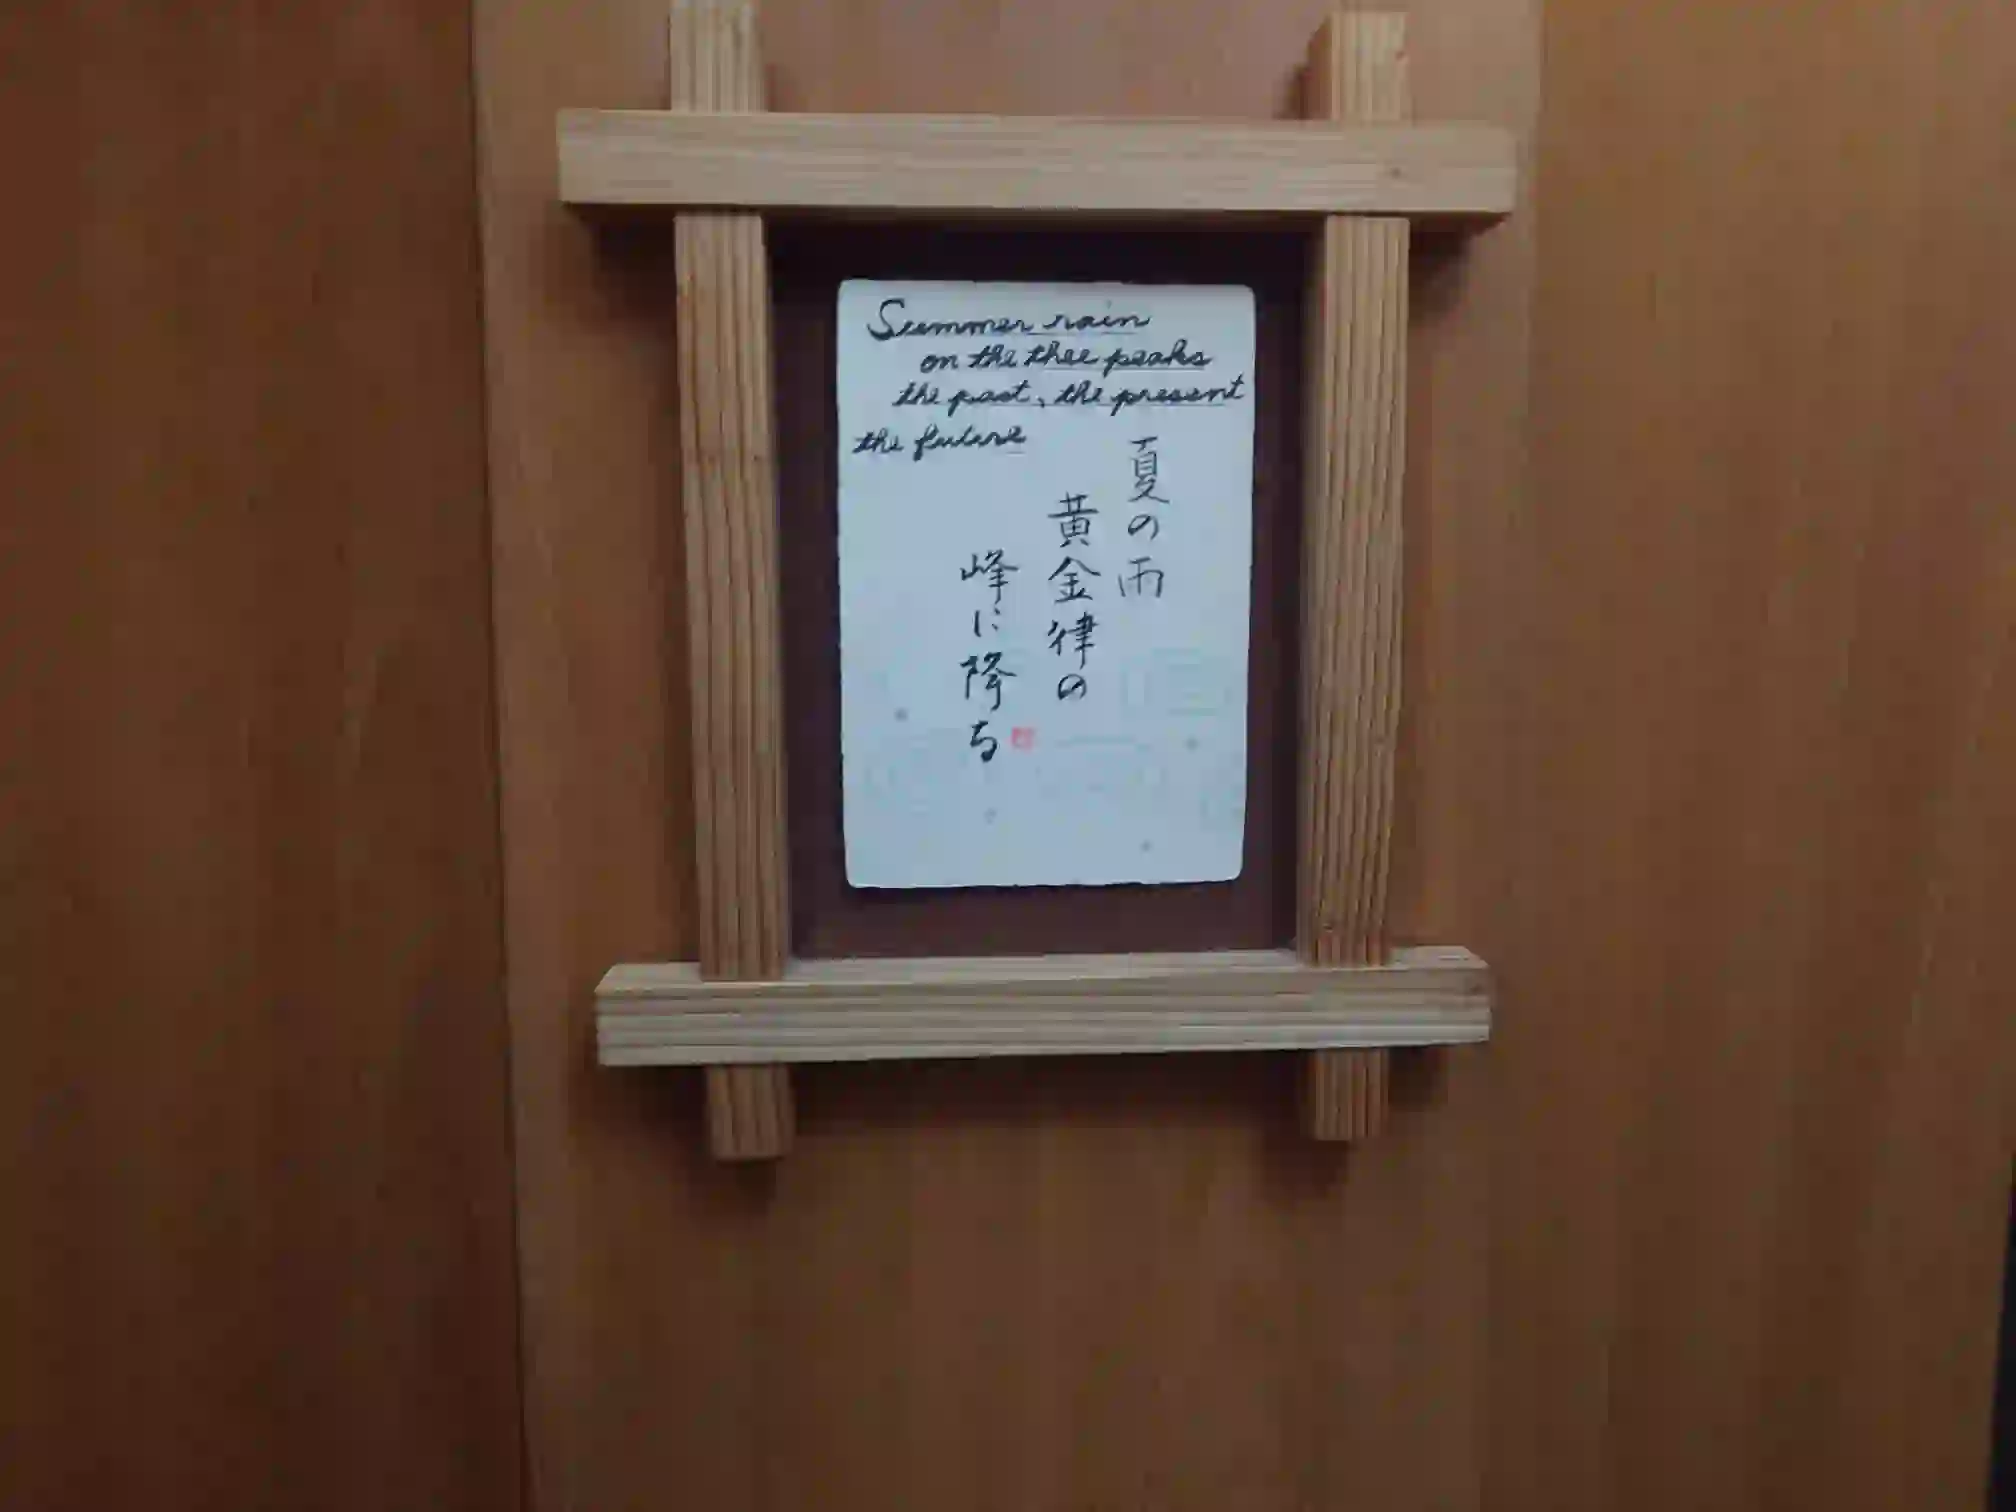 Summer rain
on the thee peaks
the past, the present
the future
夏の雨
黄金律の
峰に降る